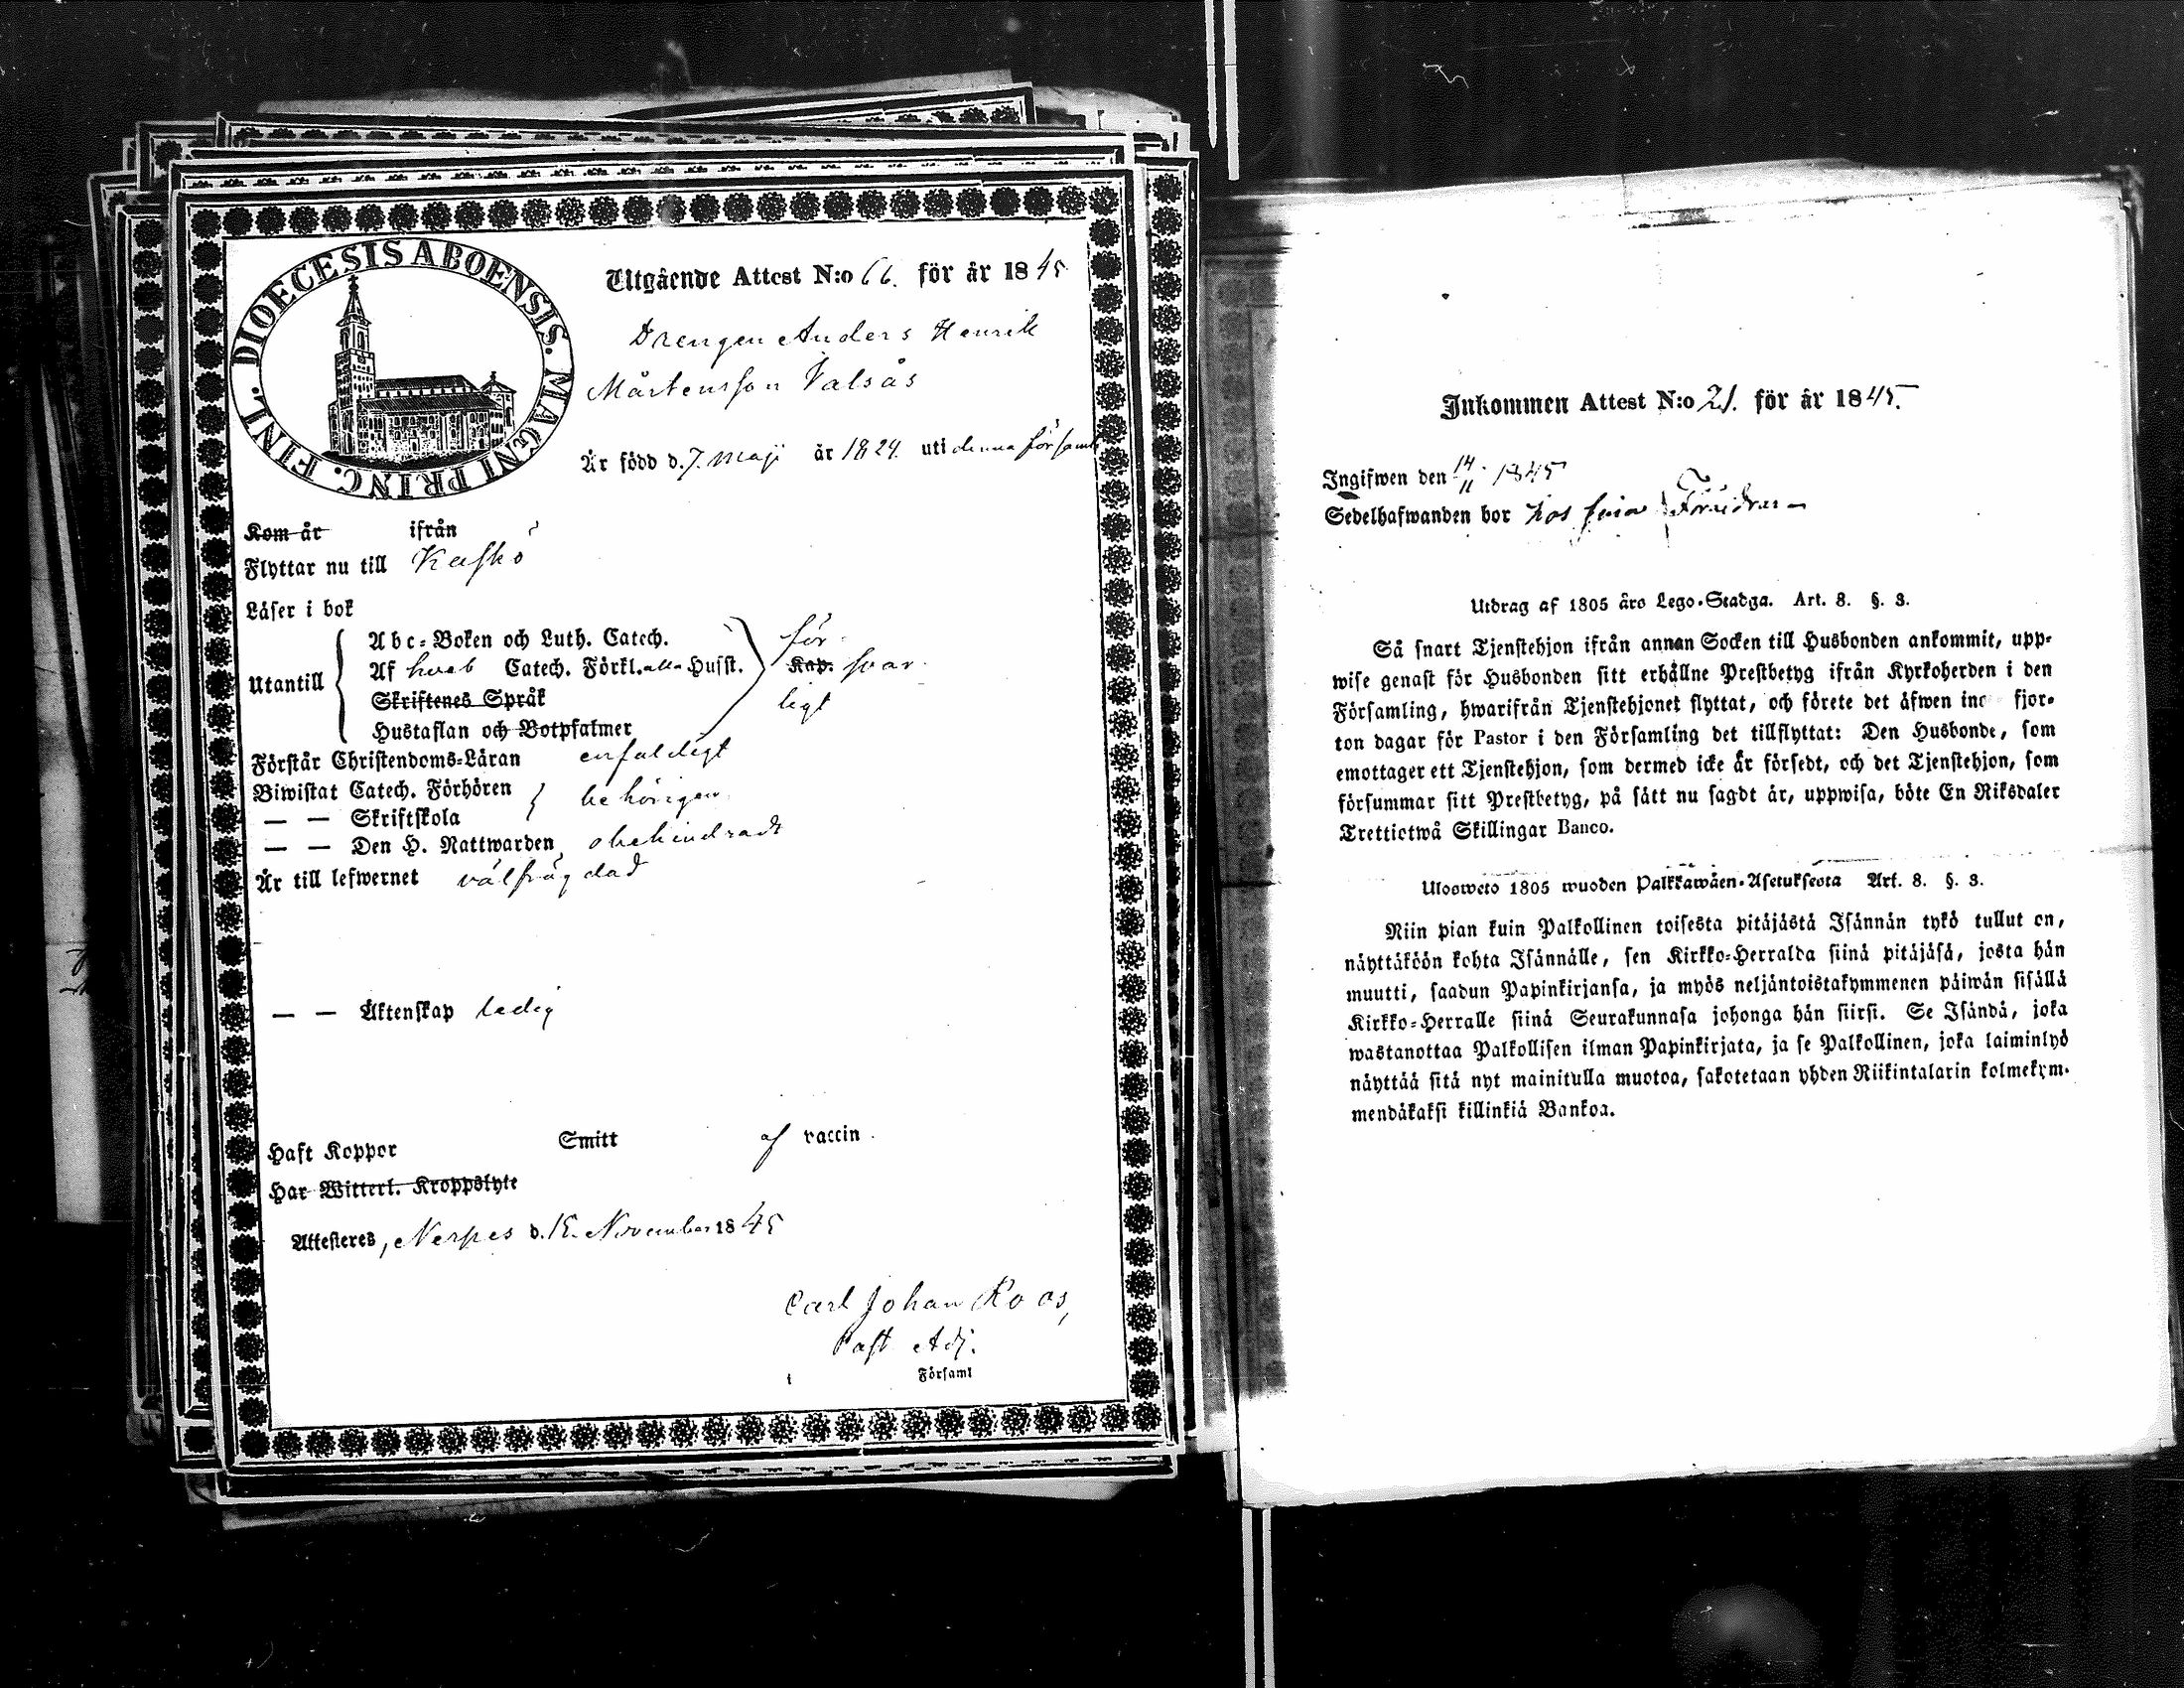 DIOECESIS ABOENSIS. MAGNI PRINC. FINL.
Utgående Attest N:o 66. för år 1845
Drengen Anders Henrik
Mårtensson Valsås
Är född d. 7. Maji år 1824. uti denna församl
Kom år ifrån
Flyttar nu till Kaskö
Läser i bok
Utantill
Abc-Boken och Luth. Catech.
Af hvab Catech. Förkl. alla Husst. Kap.
Skriftenes Språk
Hustaflan och Botpsalmer
för
svar
ligt
Förstår Christendoms-Läran enfaldigt
Biwistat Catech. Förhören behörigen
— — Skriftskola
— — Den H. Nattwarden obehindradt
Är till lefwernet välfrägdad
— — Äktenskap ledig
Haft Koppor Smitt af vaccin.
Har Witterl. Kroppslyte
Attesteres, Nerpes d. November 1845
Carl Johan Roos,
Past. Adj.
i Församl
Inkommen Attest N:o 21. för år 1845.
Ingifwen den 14/11 1845
Sedelhafwanden bor hos sina Föräldrar
Utdrag af 1805 års Lego-Stadga. Art. 8. §. 3.
Så snart Tjenstehjon ifrån annan Socken till Husbonden ankommit, upp-
wise genast för Husbonden sitt erhållne Prestbetyg ifrån Kyrkoherden i den
Församling, hwarifrån Tjenstehjonet flyttat, och förete det äfwen in fjor-
ton dagar för Pastor i den Församling det tillflyttat: Den Husbonde, som
emottager ett Tjenstehjon, som dermed icke är försedt, och det Tjenstehjon, som
försummar sitt Prestbetyg, på sätt nu sagdt är, uppwisa, böte En Riksdaler
Trettiotwå Skillingar Banco.
Ulosweto 1805 wuoden Palkkawäen-Asetuksesta Art. 8. §. 3.
Niin pian kuin Palkollinen toisesta pitäjästä Isännän tykö tullut on,
näyttäköön kohta Isännälle, sen Kirkko-Herralda siinä pitäjäsä, josta hän
muutti, saadun Papinkirjansa, ja myös neljäntoistakymmenen päiwän sisällä
Kirkko-Herralle siinä Seurakunnasa johonga hän siirsi. Se Isändä, joka
wastanottaa Palkollisen ilman Papinkirjata, ja se Palkollinen, joka laiminlyö
näyttää sitä nyt mainitulla muotoa, sakotetaan yhden Riikintalarin kolmekym-
mendäkaksi killinkiä Bankoa.